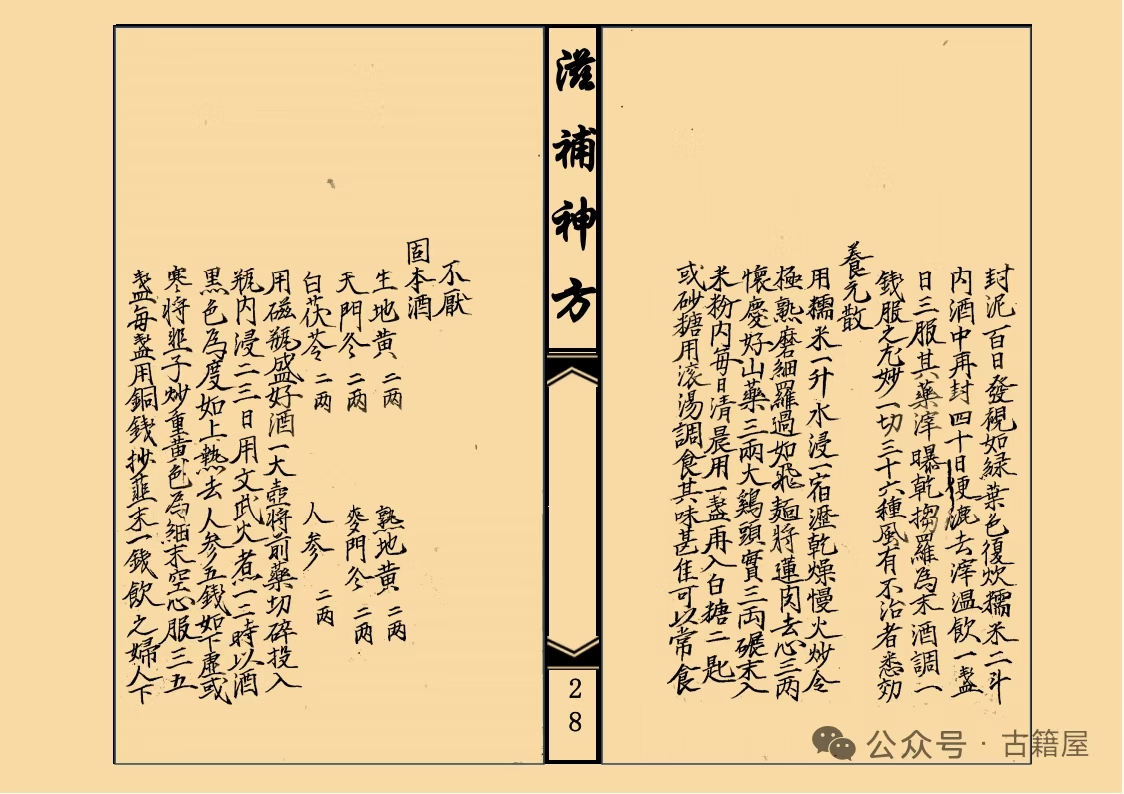 封泥百日發視如綠葉色復炊糯米二斗
内酒中再封四十日便漉去滓溫飲一盞
日三服其藥滓曝乾搗羅為末酒調一
錢服之尤妙一切三十六種風有不治者悉効
養元散
用糯米一升水浸一宿瀝乾燥慢火炒令
極熟磨細羅過如飛麵將蓮肉去心三两
懷慶好山藥三兩大鷄頭實三両碾末入
米粉内每日清晨用一盞再入白糖二匙
或砂糖用滾湯調食其味甚佳可以常食
滋補神方
28
不厭
固本酒
生地黄 二两 熟地黄 二两
天門冬 二两 麥門冬 二两
白茯苓 二两 人參 二两
用磁瓶盛好酒一大壺將前藥切碎投入
瓶内浸二三日用文武火煮一二時以酒
黑色為度如上熱去人參五錢如下虛或
寒將韮子炒重黄色為細末空心服三五
盞每盞用銅錢抄韮末一錢飲之婦人下
公众号 · 古籍屋